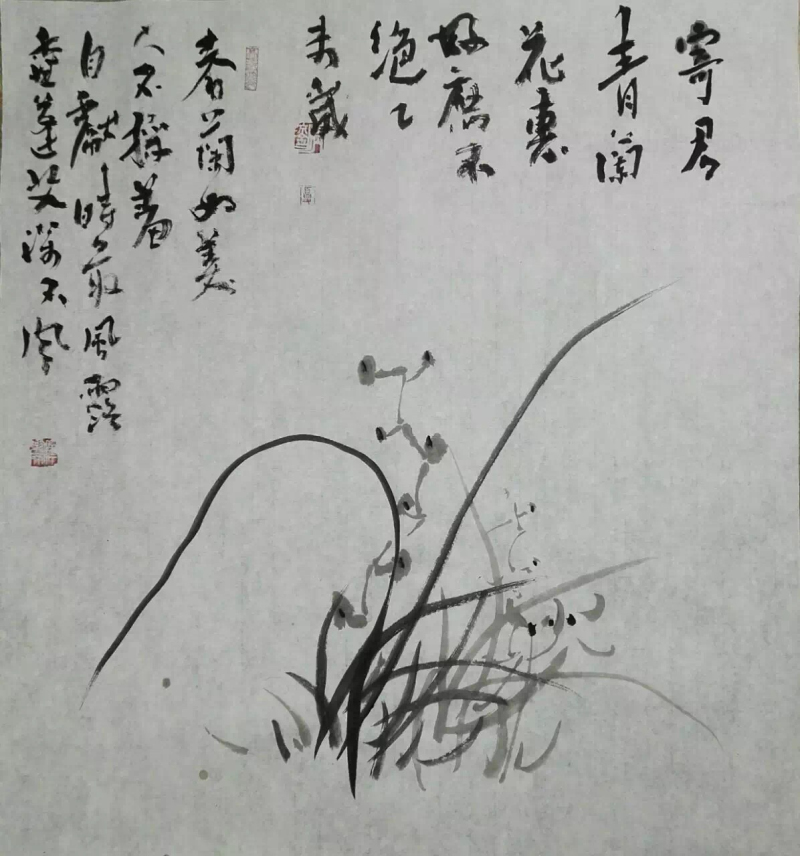 寄君
青蘭
花惠
好庶不
絕乙
未歲
春蘭如美
人不採羞
自獻時聞風露
香蓬艾深不見